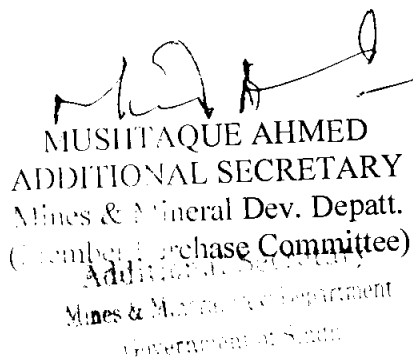 MUSHTAQUE AHMED
ADDITIONAL SECRETARY
Mines & Mineral Dev. Depatt.
(Member Purchase Committee)
Additional Secretary
Mines & Mineral Dev Department
Government of Sindh